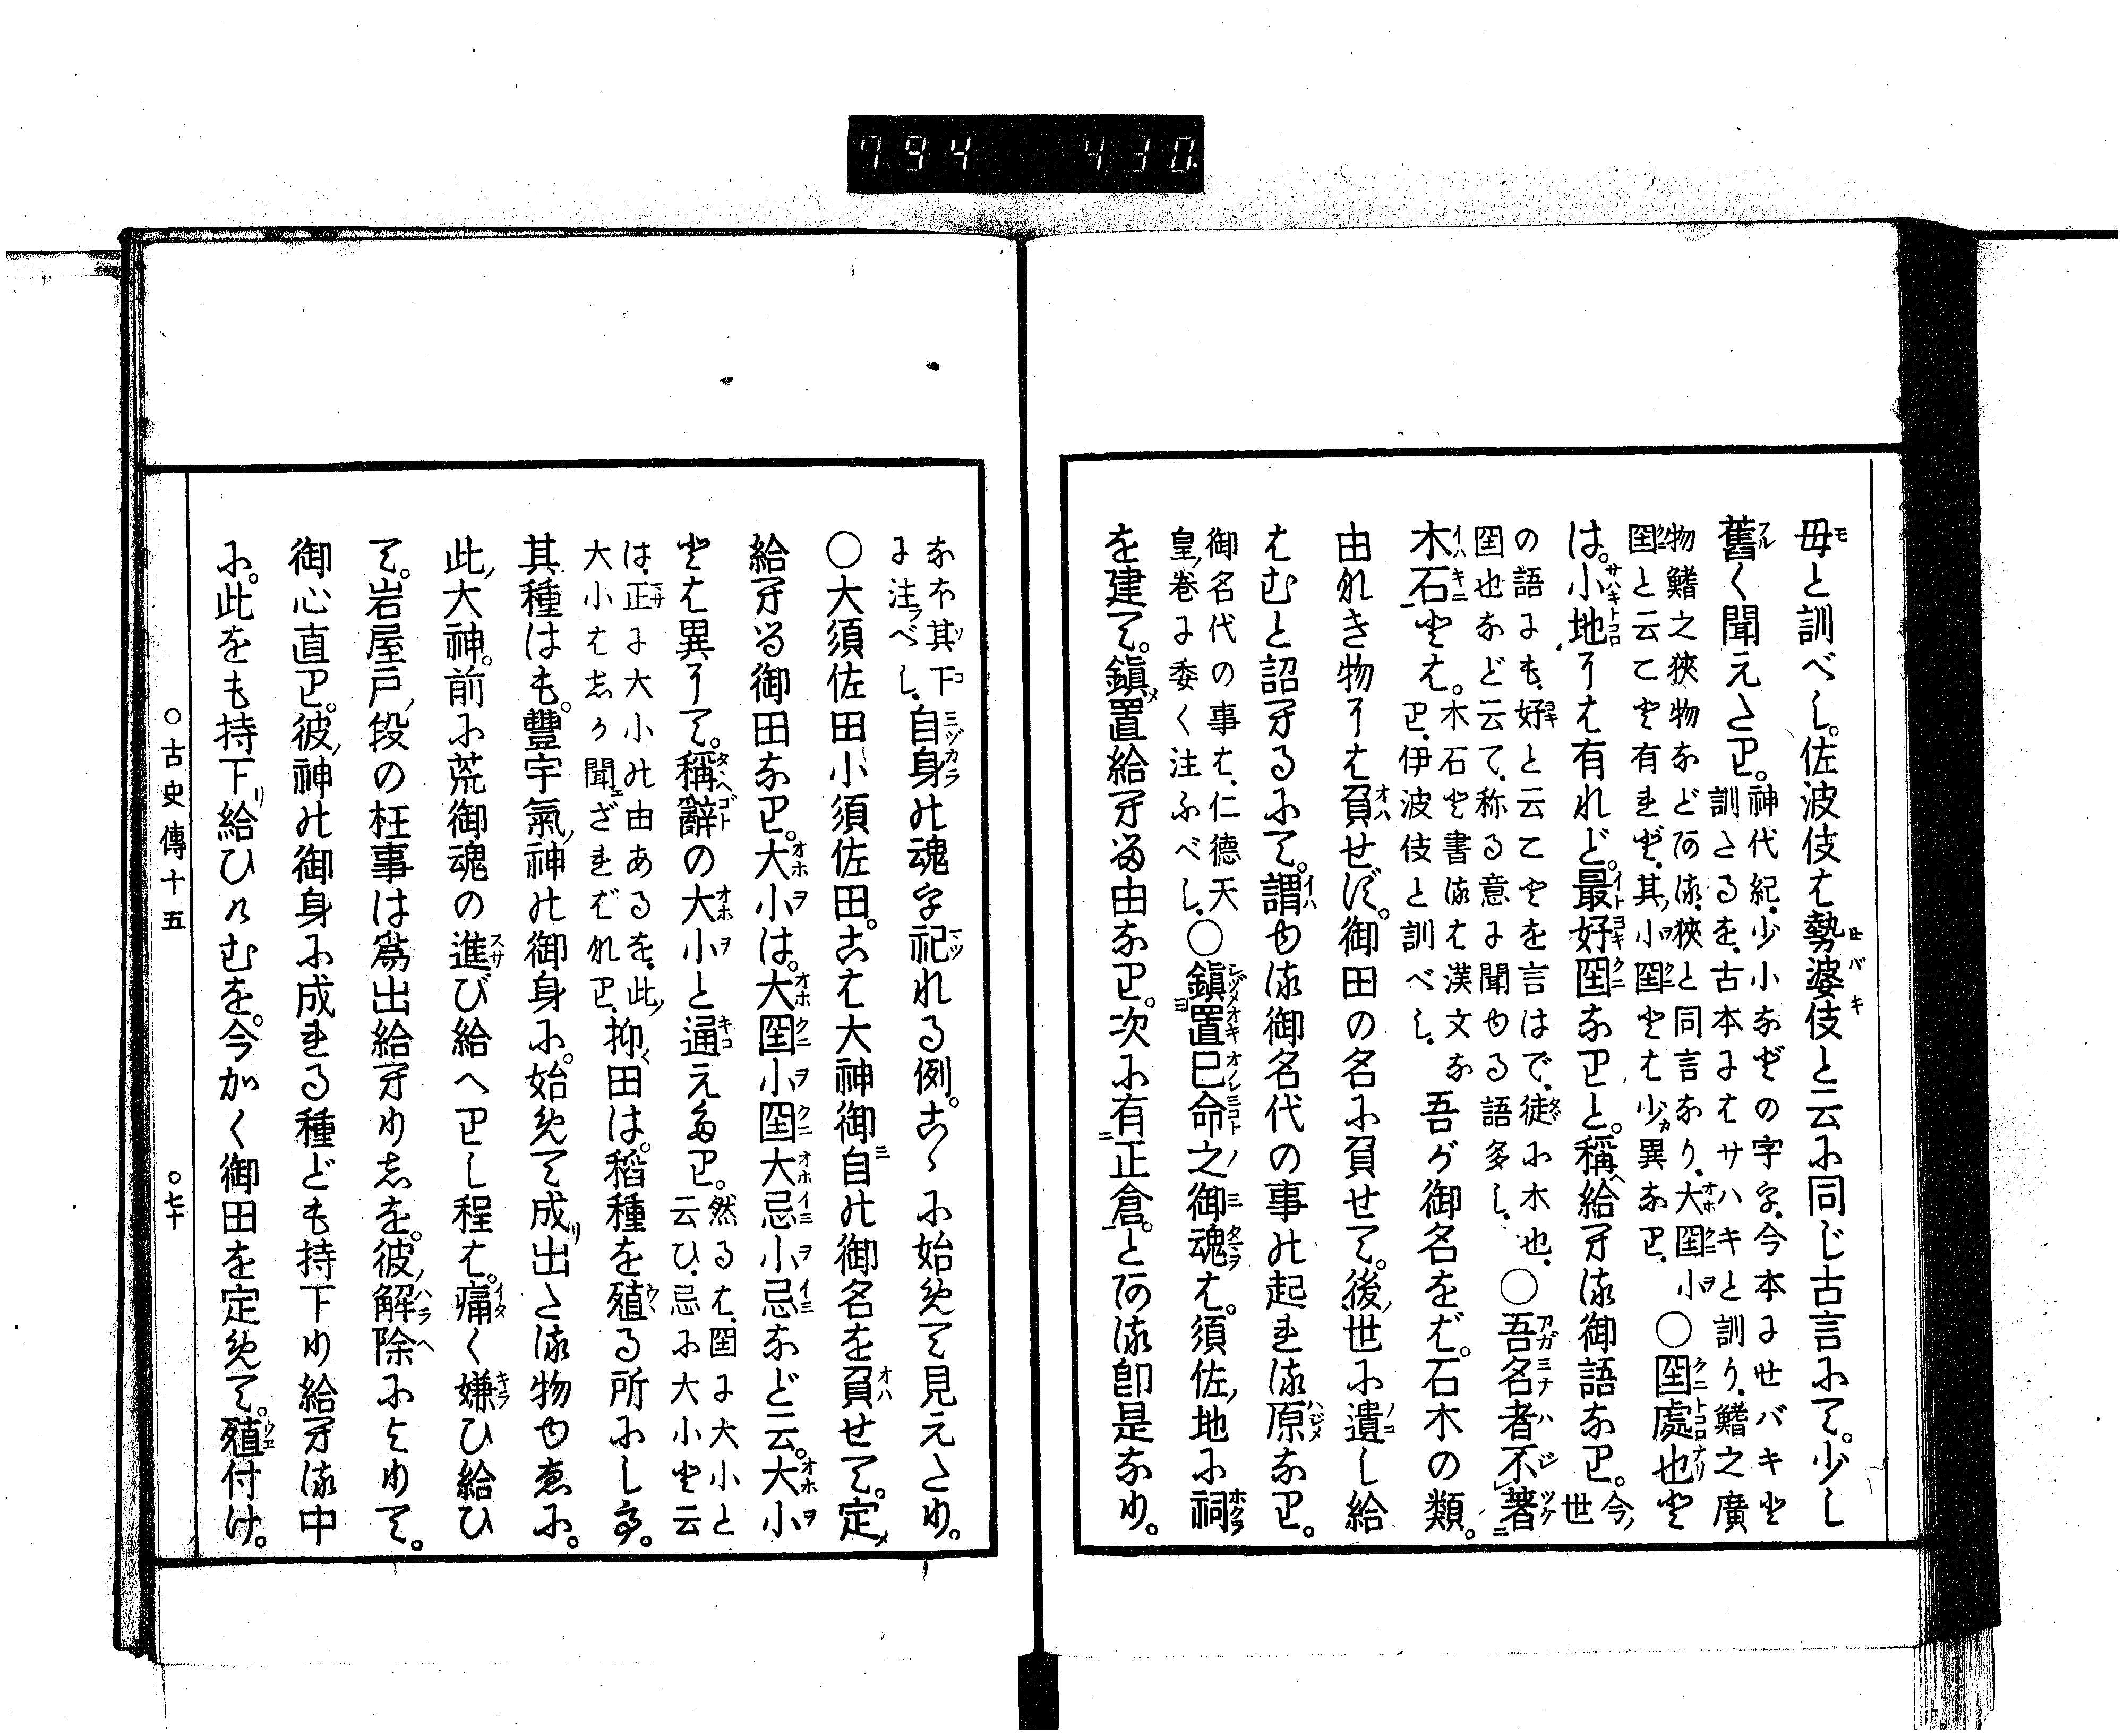 794 430.
毋と訓べし。佐波伎は勢婆伎と云に同じ古言にて。少し
舊く聞えたり。神代紀、少小などの字を、今本にセバキと
訓たるを、古本にはサハキと訓り、鰭之廣
物鰭之狹物などある、狹と同言なり、大国小
国と云こと有れど、其小国とは少異なり、○国處也と
は。小地くは有れど。最好国なりと。稱給へる御語なり。今世
の語にも、好と云ことを言はで、徒に木也、
国也など云て、称る意に聞ゆる語多し、○吾名者不著
木石とは。木石と書るは漢文なり、伊波伎と訓べし、吾が御名をば。石木の類。
由なき物には負せじ。御田の名に負せて。後世に遺し給
はむと詔へるにて。謂ゆる御名代の事の起れる原なり。
御名代の事は、仁德天
皇ノ巻に委く注ふべし、○鎭置己命之御魂は。須佐ノ地に祠
を建て。鎭置給へる由なり。次に有正倉。とある即是なり。
なほ其下
に注べし、自身の魂を祀れる例。こゝに始めて見えたり。
○大須佐田小須佐田。こは大神御自の御名を負せて。定
給へる御田なり。大小は。大国小国大忌小忌など云。大小
とは異にて。稱辭の大小と通えたり。然るは、国に大小と
云ひ、忌に大小と云
は、正に大小の由あるを、此ノ
大小はしか聞ざればなり、抑田は。稻種を殖る所にし有。
其種はも。豐宇氣ノ神の御身に。始めて成出たる物ゆゑに。
此ノ大神。前に荒御魂の進び給へりし程は。痛く嫌ひ給ひ
て。岩屋戸ノ段の枉事は爲出給へりしを。彼ノ解除によりて。
御心直り。彼ノ神の御身に成れる種ども持下り給へる中
に。此をも持下給ひけむを。今かく御田を定めて。殖付け。
○古史傳十五
○七十